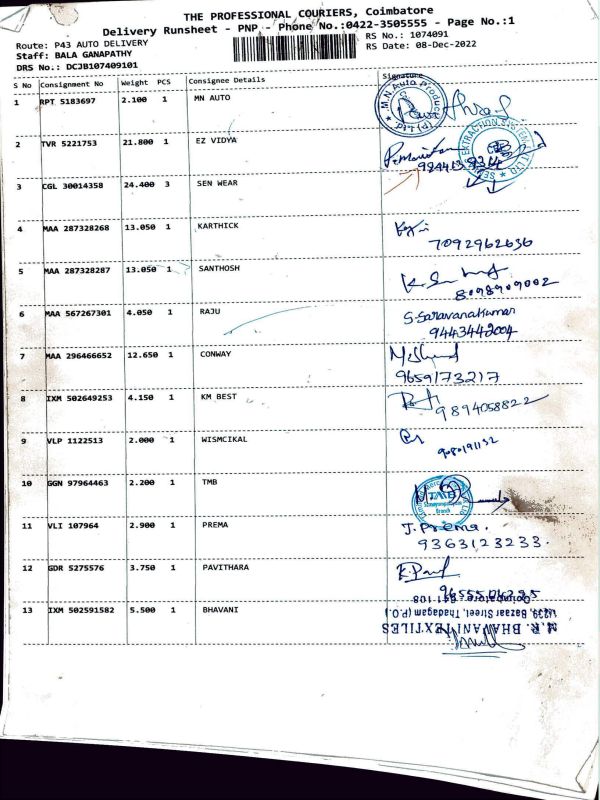 THE PROFESSIONAL COURIERS, Coimbatore
Delivery Runsheet - PNP - Phone No.:0422-3505555 - Page No.:1
Route: P43 AUTO DELIVERY
RS No.: 1074091
Staff: BALA GANAPATHY
RS Date: 08-Dec-2022
DRS No.: DCJB107409101
S No Consignment No Weight PCS Consignee Details Signature
1 RPT 5183697 2.100 1 MN AUTO
M.N. Auto Product (P) Ltd
2 TVR 5221753 21.800 1 EZ VIDYA
3 CGL 30014358 24.400 3 SEN WEAR
4 MAA 287328268 13.050 1 KARTHICK
7092962636
5 MAA 287328287 13.050 1 SANTHOSH
8098909002
6 MAA 567267301 4.050 1 RAJU
S. Saravanakumar
9443442004
7 MAA 296466652 12.650 1 CONWAY
9659173217
8 IXM 502649253 4.150 1 KM BEST
9894058822
9 VLP 1122513 2.000 1 WISMCIKAL
9080191132
10 GGN 97964463 2.200 1 TMB
TMB
Branch
11 VLI 107964 2.900 1 PREMA
J. Prema.
9363123233.
12 GDR 5275576 3.750 1 PAVITHARA
13 IXM 502591582 5.500 1 BHAVANI
M.R. BHAVANI TEXTILES
Bazaar Street, Thadagam (P.O.)
Coimbatore - 641 108